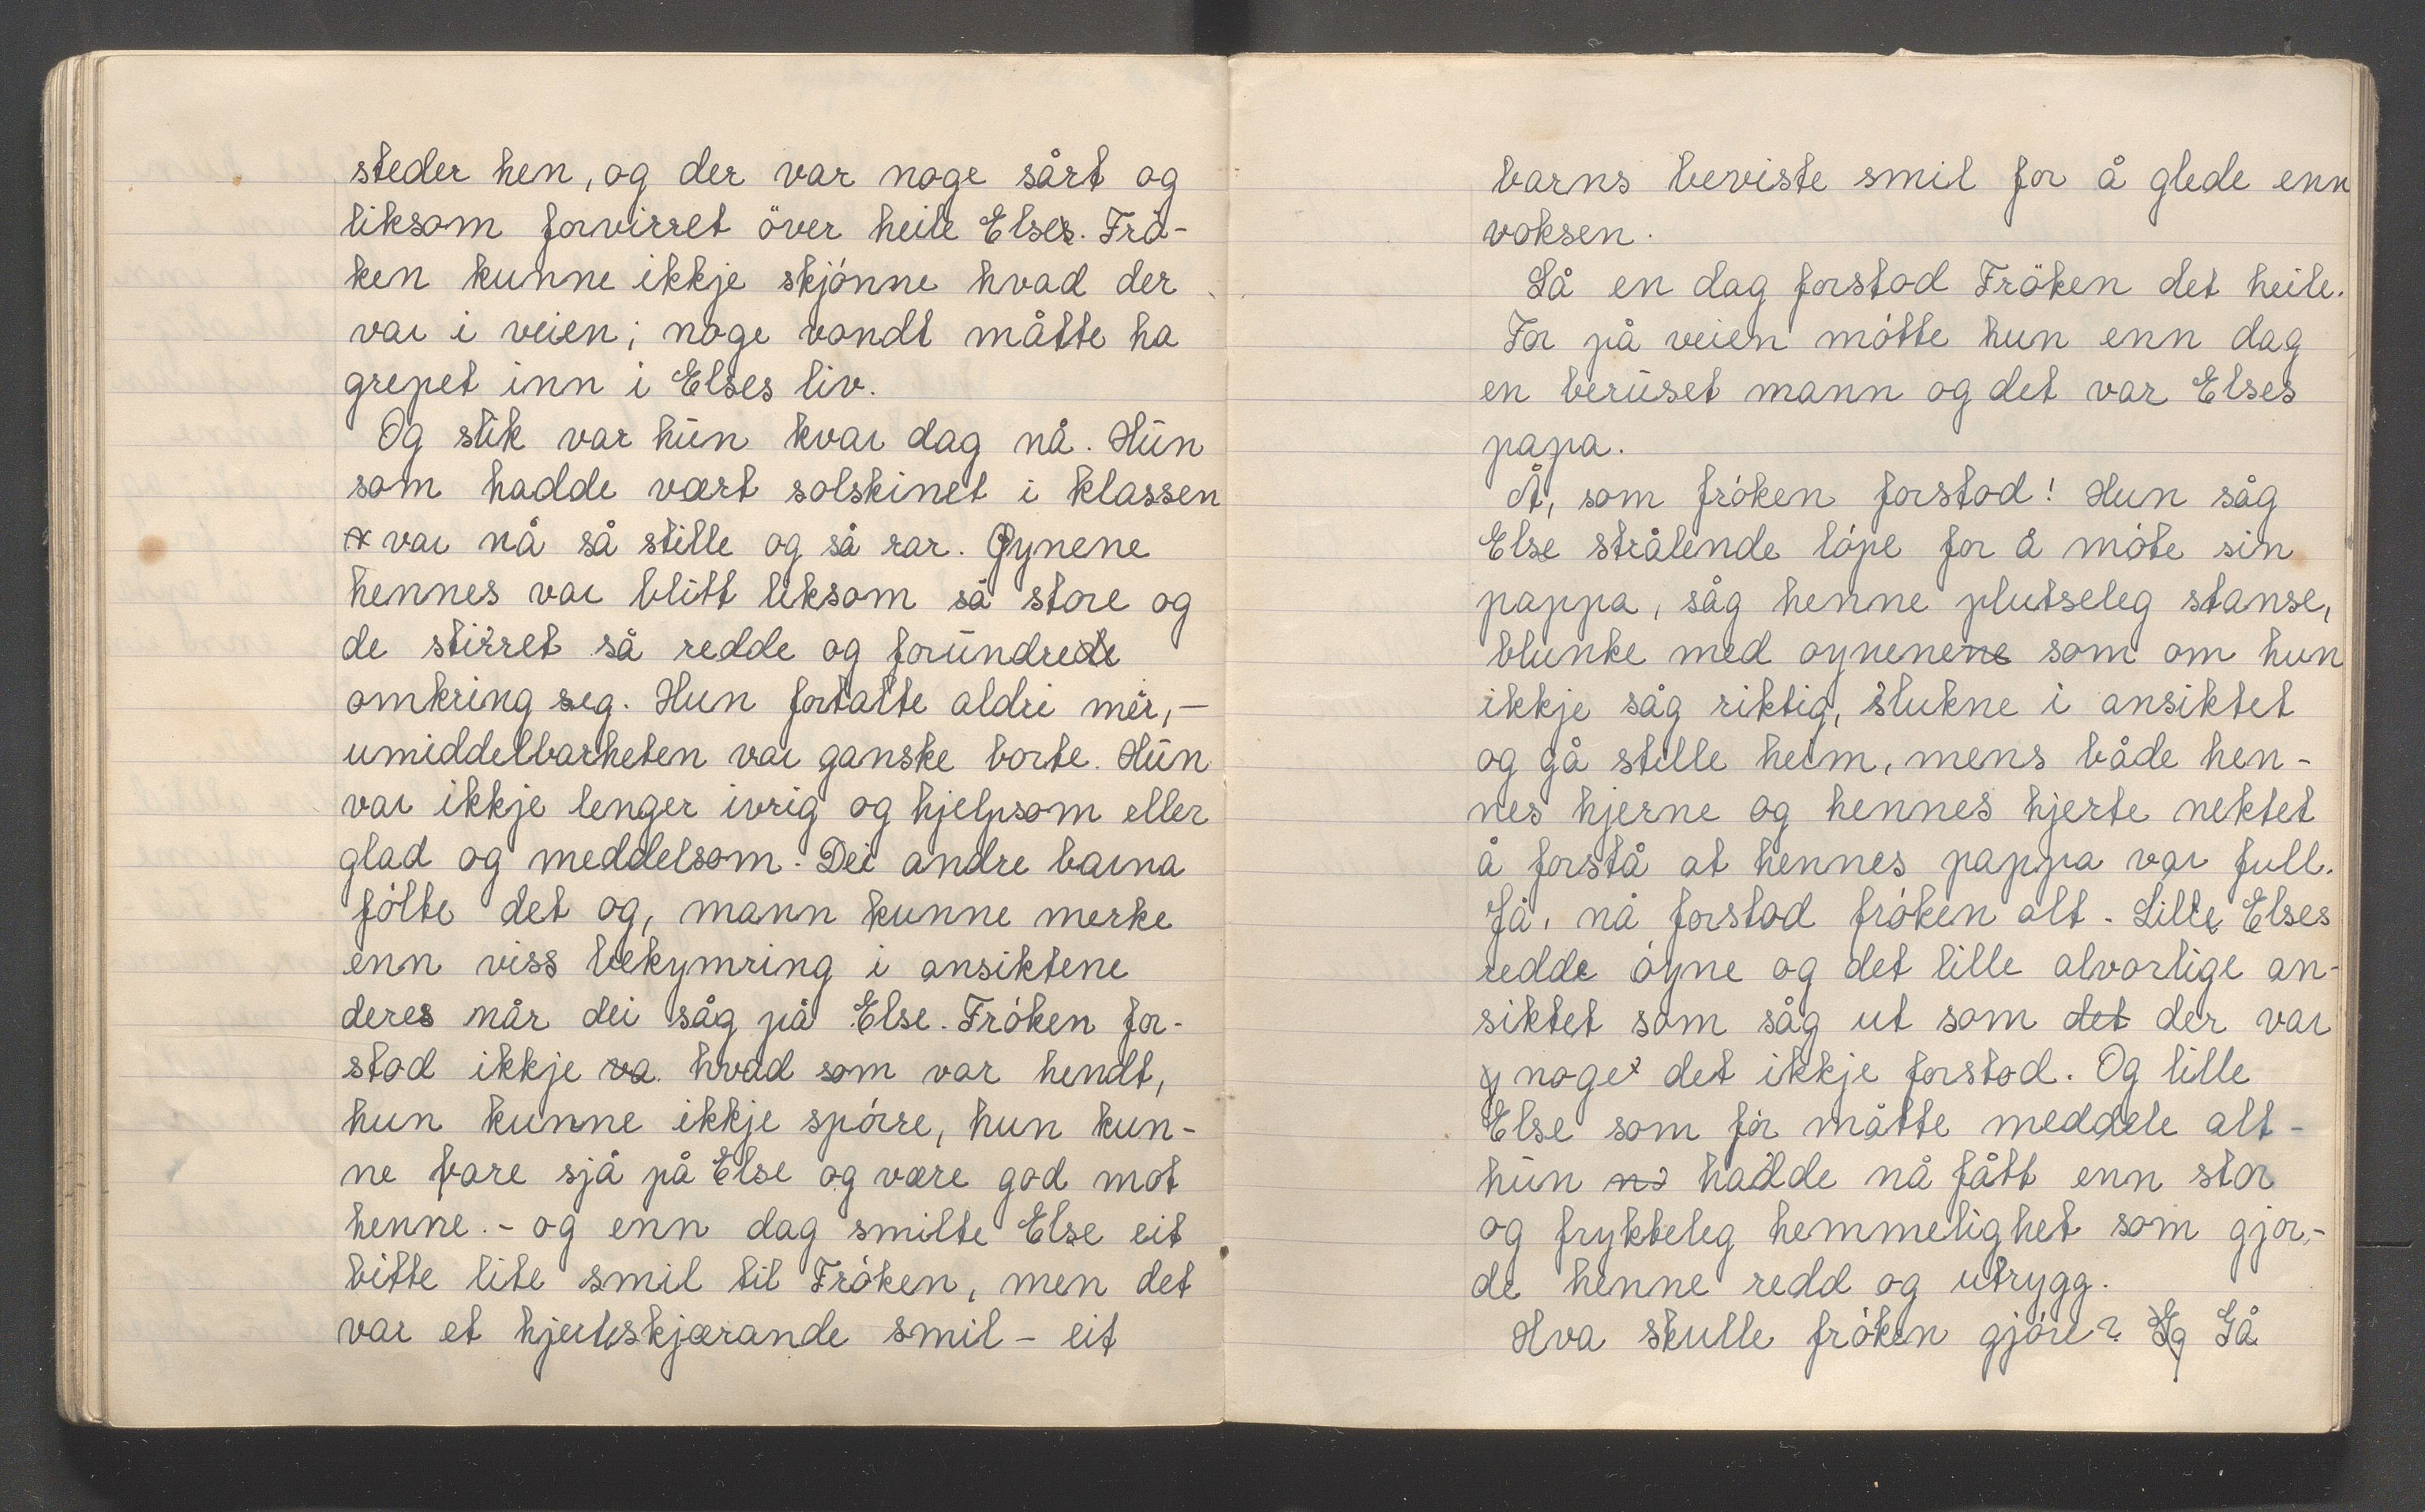 steder hen, og der var noge sårt og
liksom forvirret över heile Elses. Frö-
ken kunne ikkje skjónne hvad der
var i veien; noge vondt måtte ha
grepet inn i Elses liv.
Og slik var hūn kvar dag nå. Hūn
som hadde vært solskinet i klassen
var nå så stille og så rar. Øynene
hennes var blitt liksom så store og
de stirret så redde og forūndrede
omkring seg. Hun fortalte aldri mér,-
umiddelbarheten var ganske borte. Hūn
var ikkje lenger ivrig og hjelpsom eller
glad og meddelsom. Dei andre barna
fólte det og, mann kunne merke
enn viss bekymring i ansiktene
deres når dei såg på Else. Fróken for-
stod ikkje va. hvad som var hendt,
hun kunne ikkje spórre, hun kun-
ne bare sjå på Else og være god mot
henne.- og enn dag smilte Else eit
bitte lite smil til Fróken, men det
var et hjerteskjærande smil - eit
barns beviste smil for å glede enn
voksen.
Så en dag forstod Fröken det heile.
For på veien mótte hun enn dag
en berūset mann og det var Elses
papa.
Å, som fróken forstod! Hun såg
Else strålende lópe for å móte sin
pappa, såg henne plutseleg stanse,
blunke med oynenene som om hun
ikkje såg riktig, slukne i ansiktet
og gå stille heim, mens både hen-
nes hjerne og hennes hjerte nektet
å forstå at hennes pappa var full.
Jå, nå forstod fróken alt. Lille Elses
redde óyne og det lille alvorlige an-
siktet som såg ut som det der var
noget det ikkje forstod. Og lille
Else som fór måtte meddele alt-
hūn nå hadde nå fått enn stor
og frykteleg hemmelighet som gjor-
de henne redd og utrygg.
Hva skulle fróken gjóre? Gå